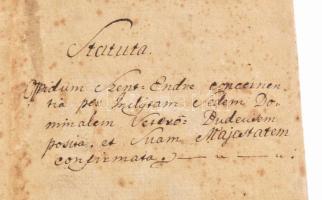 Statuta.
Oppidum Szent-Endre concernen-
tia per Inclytam Sedem Do-
minalem Vetero-Budensem
posita, et Suam Majestatem
confirmata.